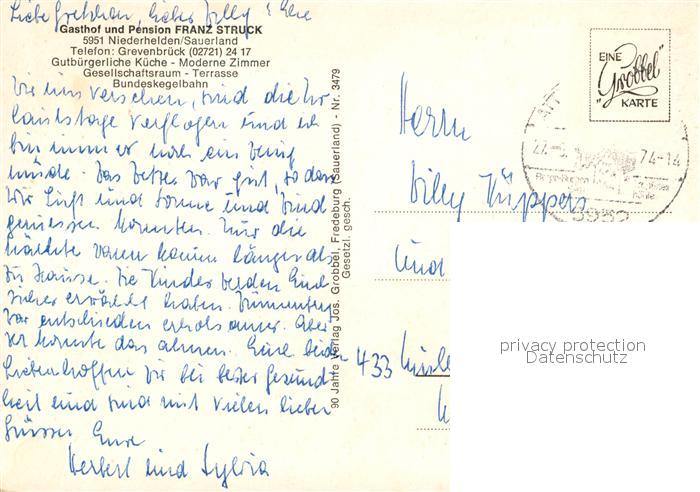 Liebe Gretchen, lieber Willy! Ehe
Gasthof und Pension FRANZ STRUCK
5951 Niederhelden/Sauerland
Telefon: Grevenbrück (02721) 24 17
Gutbürgerliche Küche - Moderne Zimmer
Gesellschaftsraum - Terrasse
Bundeskegelbahn
wir uns versehen, sind die Ur-
laubstage verflogen und ich
bin immer noch ein wenig
müde. Das Wetter war gut, so dass
wir Luft und Sonne und Wind
geniessen konnten. Nur die
Nächte waren kaum länger als
zu Hause. Die Kinder werden Euch
sicher erzählt haben.
war entschieden erholsamer. Aber
wer konnte das ahnen. Euch beiden
Lieben hoffen wir bei bester Gesund-
heit und sind mit vielen lieben
Grüssen Eure
Herbert und Sylvia
90 Jahre Verlag Jos. Grobbel, Fredeburg (Sauerland) - Nr. 3479
Gesetzl. gesch.
EINE
"Grobbel"
KARTE
74-14
5952
Herrn
Willy Küppers
und
433
privacy protection
Datenschutz